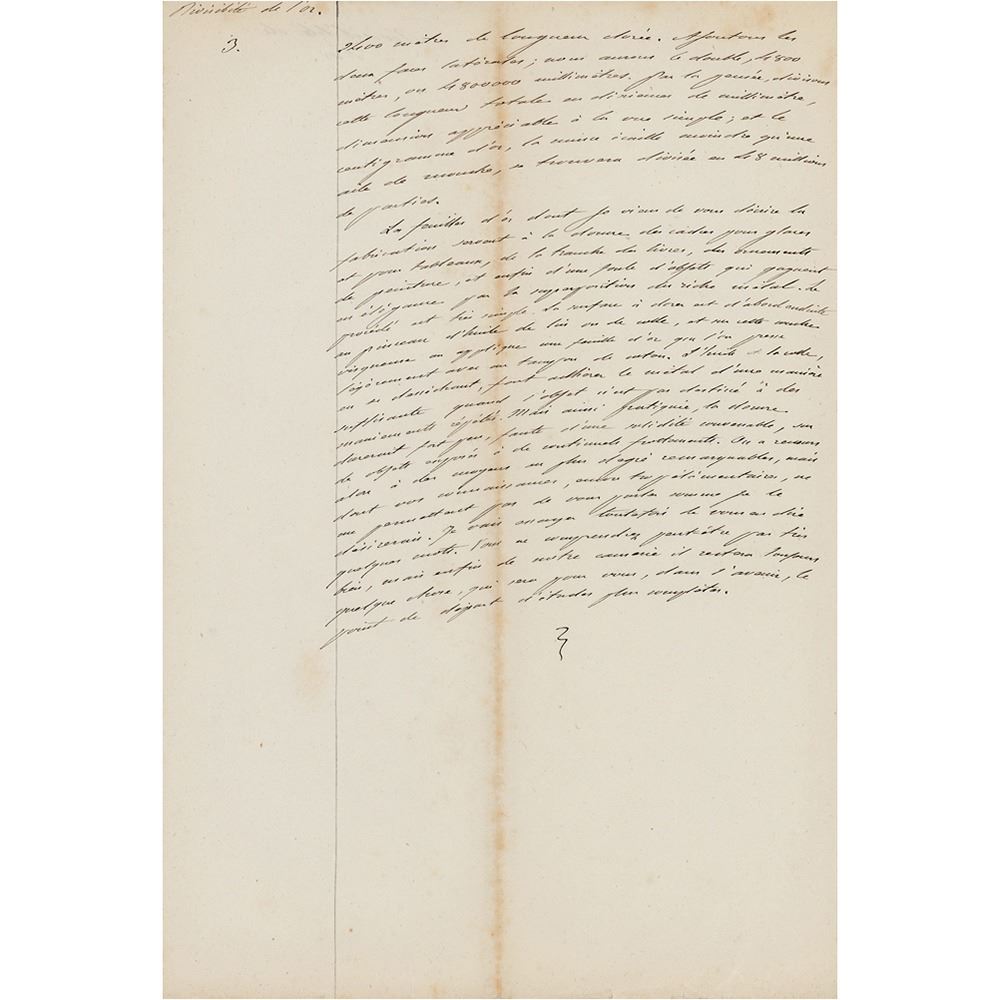 Divisibilité de l'or.
3.
2400 mètres de longueur dorée. Ajoutons les
deux faces latérales; nous aurons le double, 4800
mètres, ou 4800000 millimètres. Par la pensée, divisons
cette longueur totale en dixièmes de millimètre,
dimension appréciable à la vue simple; et le
centigramme d'or, la mince écaille moindre qu'une
aile de mouche, se trouvera divisée en 48 millions
de parties.
La feuilles d'or dont je viens de vous décrire la
fabrication servent à la dorure des cadres pour glaces
et pour tableaux, de la tranche des livres, des ornements
de peinture, et enfin d'une foule d'objets qui gagnent
en élégance par la superposition du riche métal. Le
procédé est très simple. La surface à dorer est d'abord enduite
au pinceau d'huile de lin ou de colle, et sur cette couche
visqueuse on applique une feuille d'or que l'on presse
légèrement avec un tampon de coton. L'huile et la colle,
en se desséchant, font adhérer le métal d'une manière
suffisante quand l'objet n'est pas destiné à des
maniements répétés. Mais ainsi pratiquée, la dorure
durerait fort peu, faute d'une solidité convenable, sur
les objets exposés à de continuels frottements. On a recours
alors à des moyens au plus degré remarquables, mais
dont vos connaissances, encore trop élémentaires, ne
me permettent pas de vous parler comme je le
désirerais. Je vais essayer toutefois de vous en dire
quelques mots. Vous ne comprendrez peut-être pas très
bien, mais enfin de notre causerie il restera toujours
quelque chose, qui sera pour vous, dans l'avenir, le
point de départ d'études plus complètes.